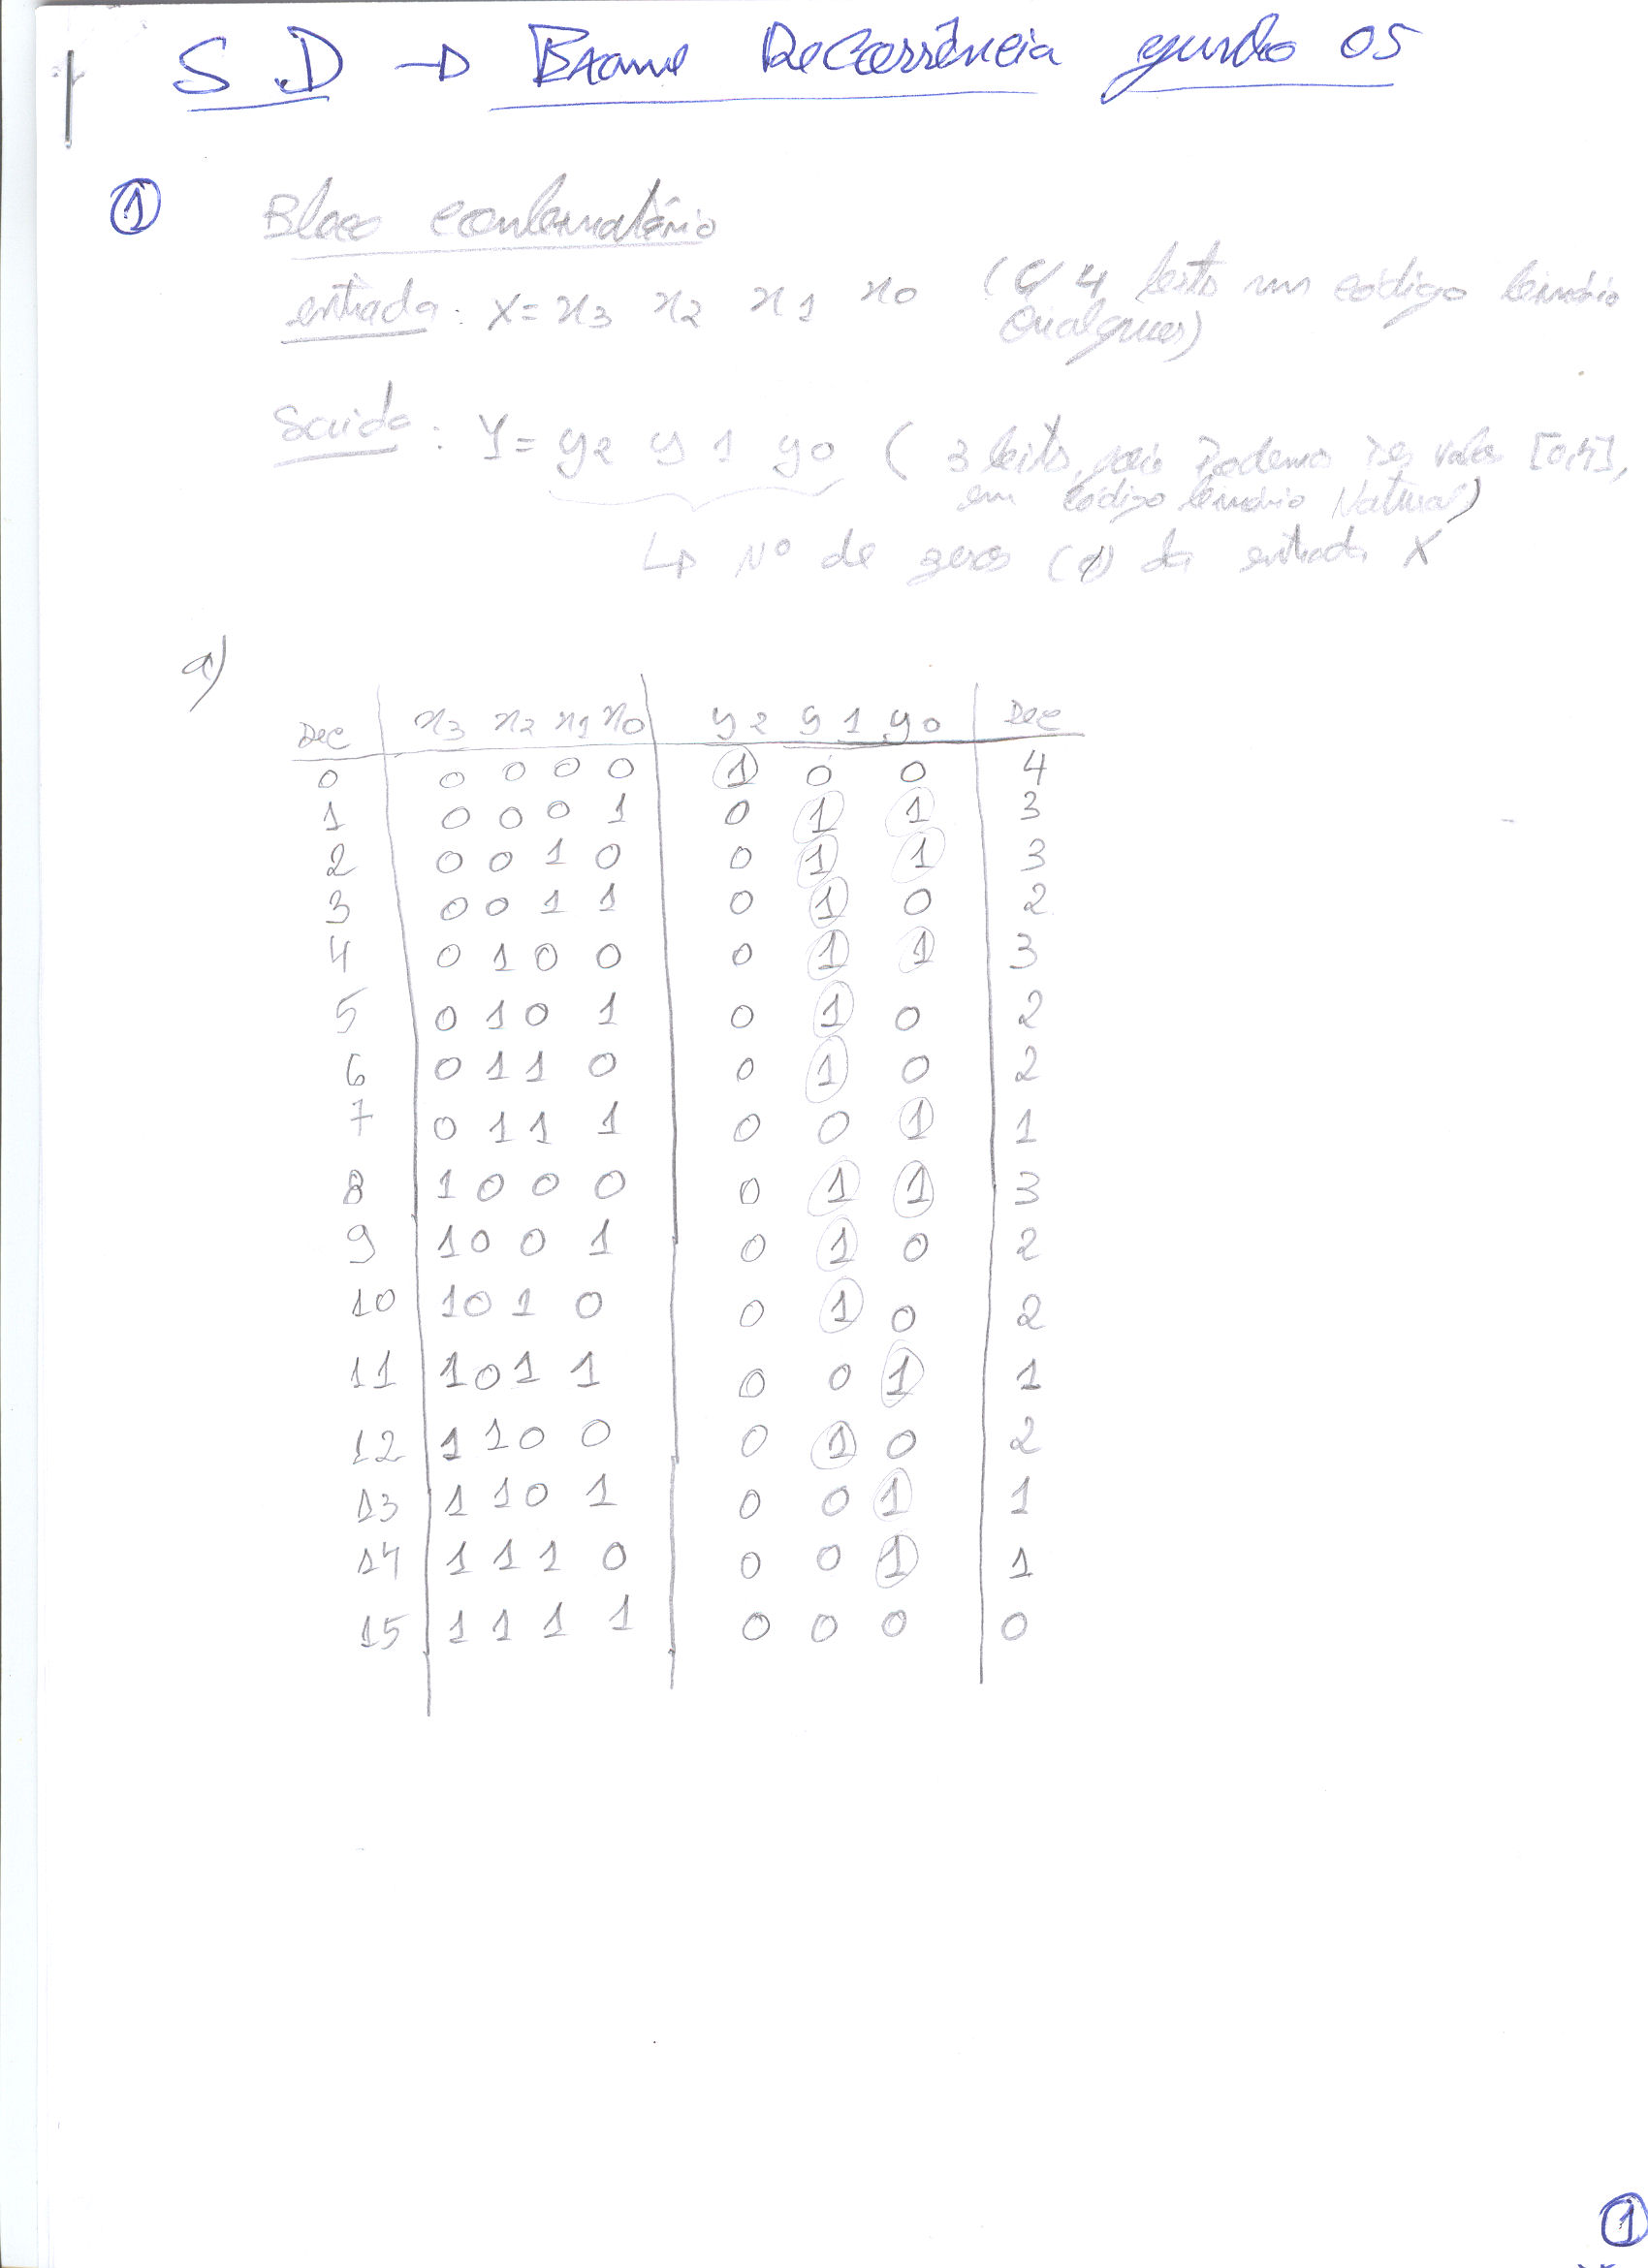 S.D → Exame Recorrência junho 05
① Bloco combinatório
entrada: X= x3 x2 x1 x0 (C/ 4 bits num código binário
qualquer)
Saída: Y= y2 y1 y0 ( 3 bits, pois podemos ter valor [0,4],
em código binário Natural)
↳ Nº de zeros (0) da entrada X
a)
Dec x3 x2 x1 x0 y2 y1 y0 Dec
0 0 0 0 0 1 0 0 4
1 0 0 0 1 0 1 1 3
2 0 0 1 0 0 1 1 3
3 0 0 1 1 0 1 0 2
4 0 1 0 0 0 1 1 3
5 0 1 0 1 0 1 0 2
6 0 1 1 0 0 1 0 2
7 0 1 1 1 0 0 1 1
8 1 0 0 0 0 1 1 3
9 1 0 0 1 0 1 0 2
10 1 0 1 0 0 1 0 2
11 1 0 1 1 0 0 1 1
12 1 1 0 0 0 1 0 2
13 1 1 0 1 0 0 1 1
14 1 1 1 0 0 0 1 1
15 1 1 1 1 0 0 0 0
①